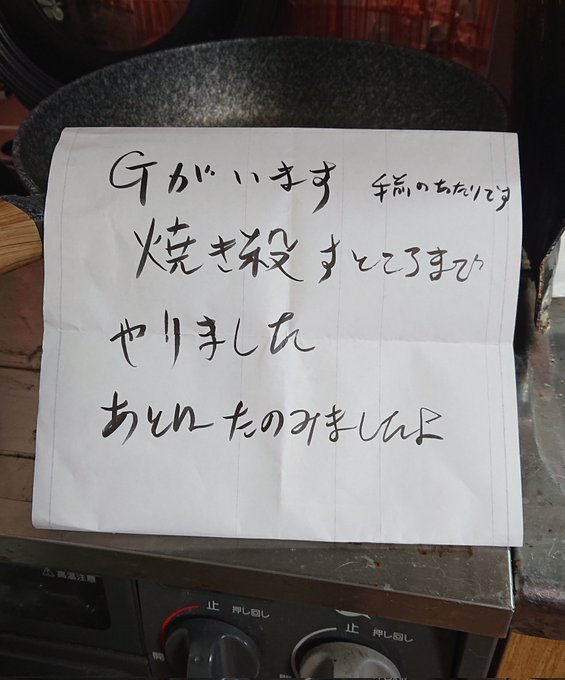 Gがいます 手前のあたりです
焼き殺すところまで
やりました
あとは たのみましたよ
高温注意
止 押し回し
止 押し回し